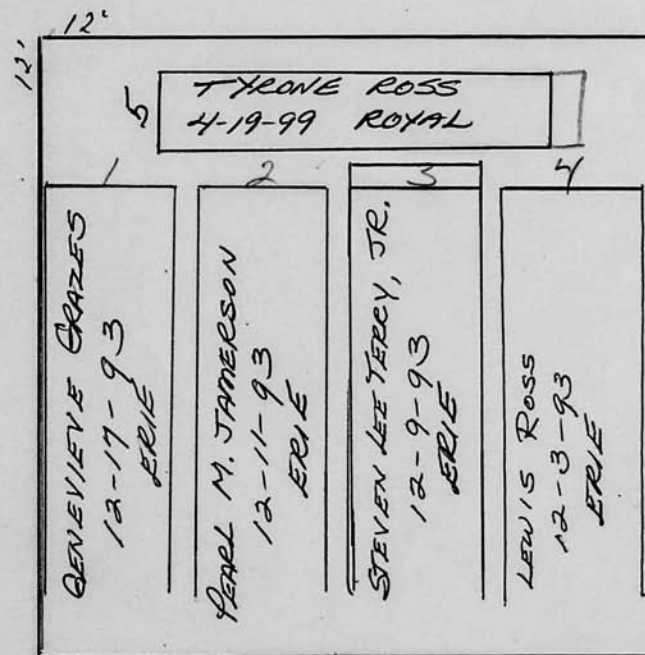 12'
12'
5
TYRONE ROSS
4-19-99 ROYAL
1
GENEVIEVE GRAZES
12-17-93
ERIE
2
PEARL M. JAMERSON
12-11-93
ERIE
3
STEVEN LEE TERRY, JR.
12-9-93
ERIE
4
LEWIS ROSS
12-3-93
ERIE